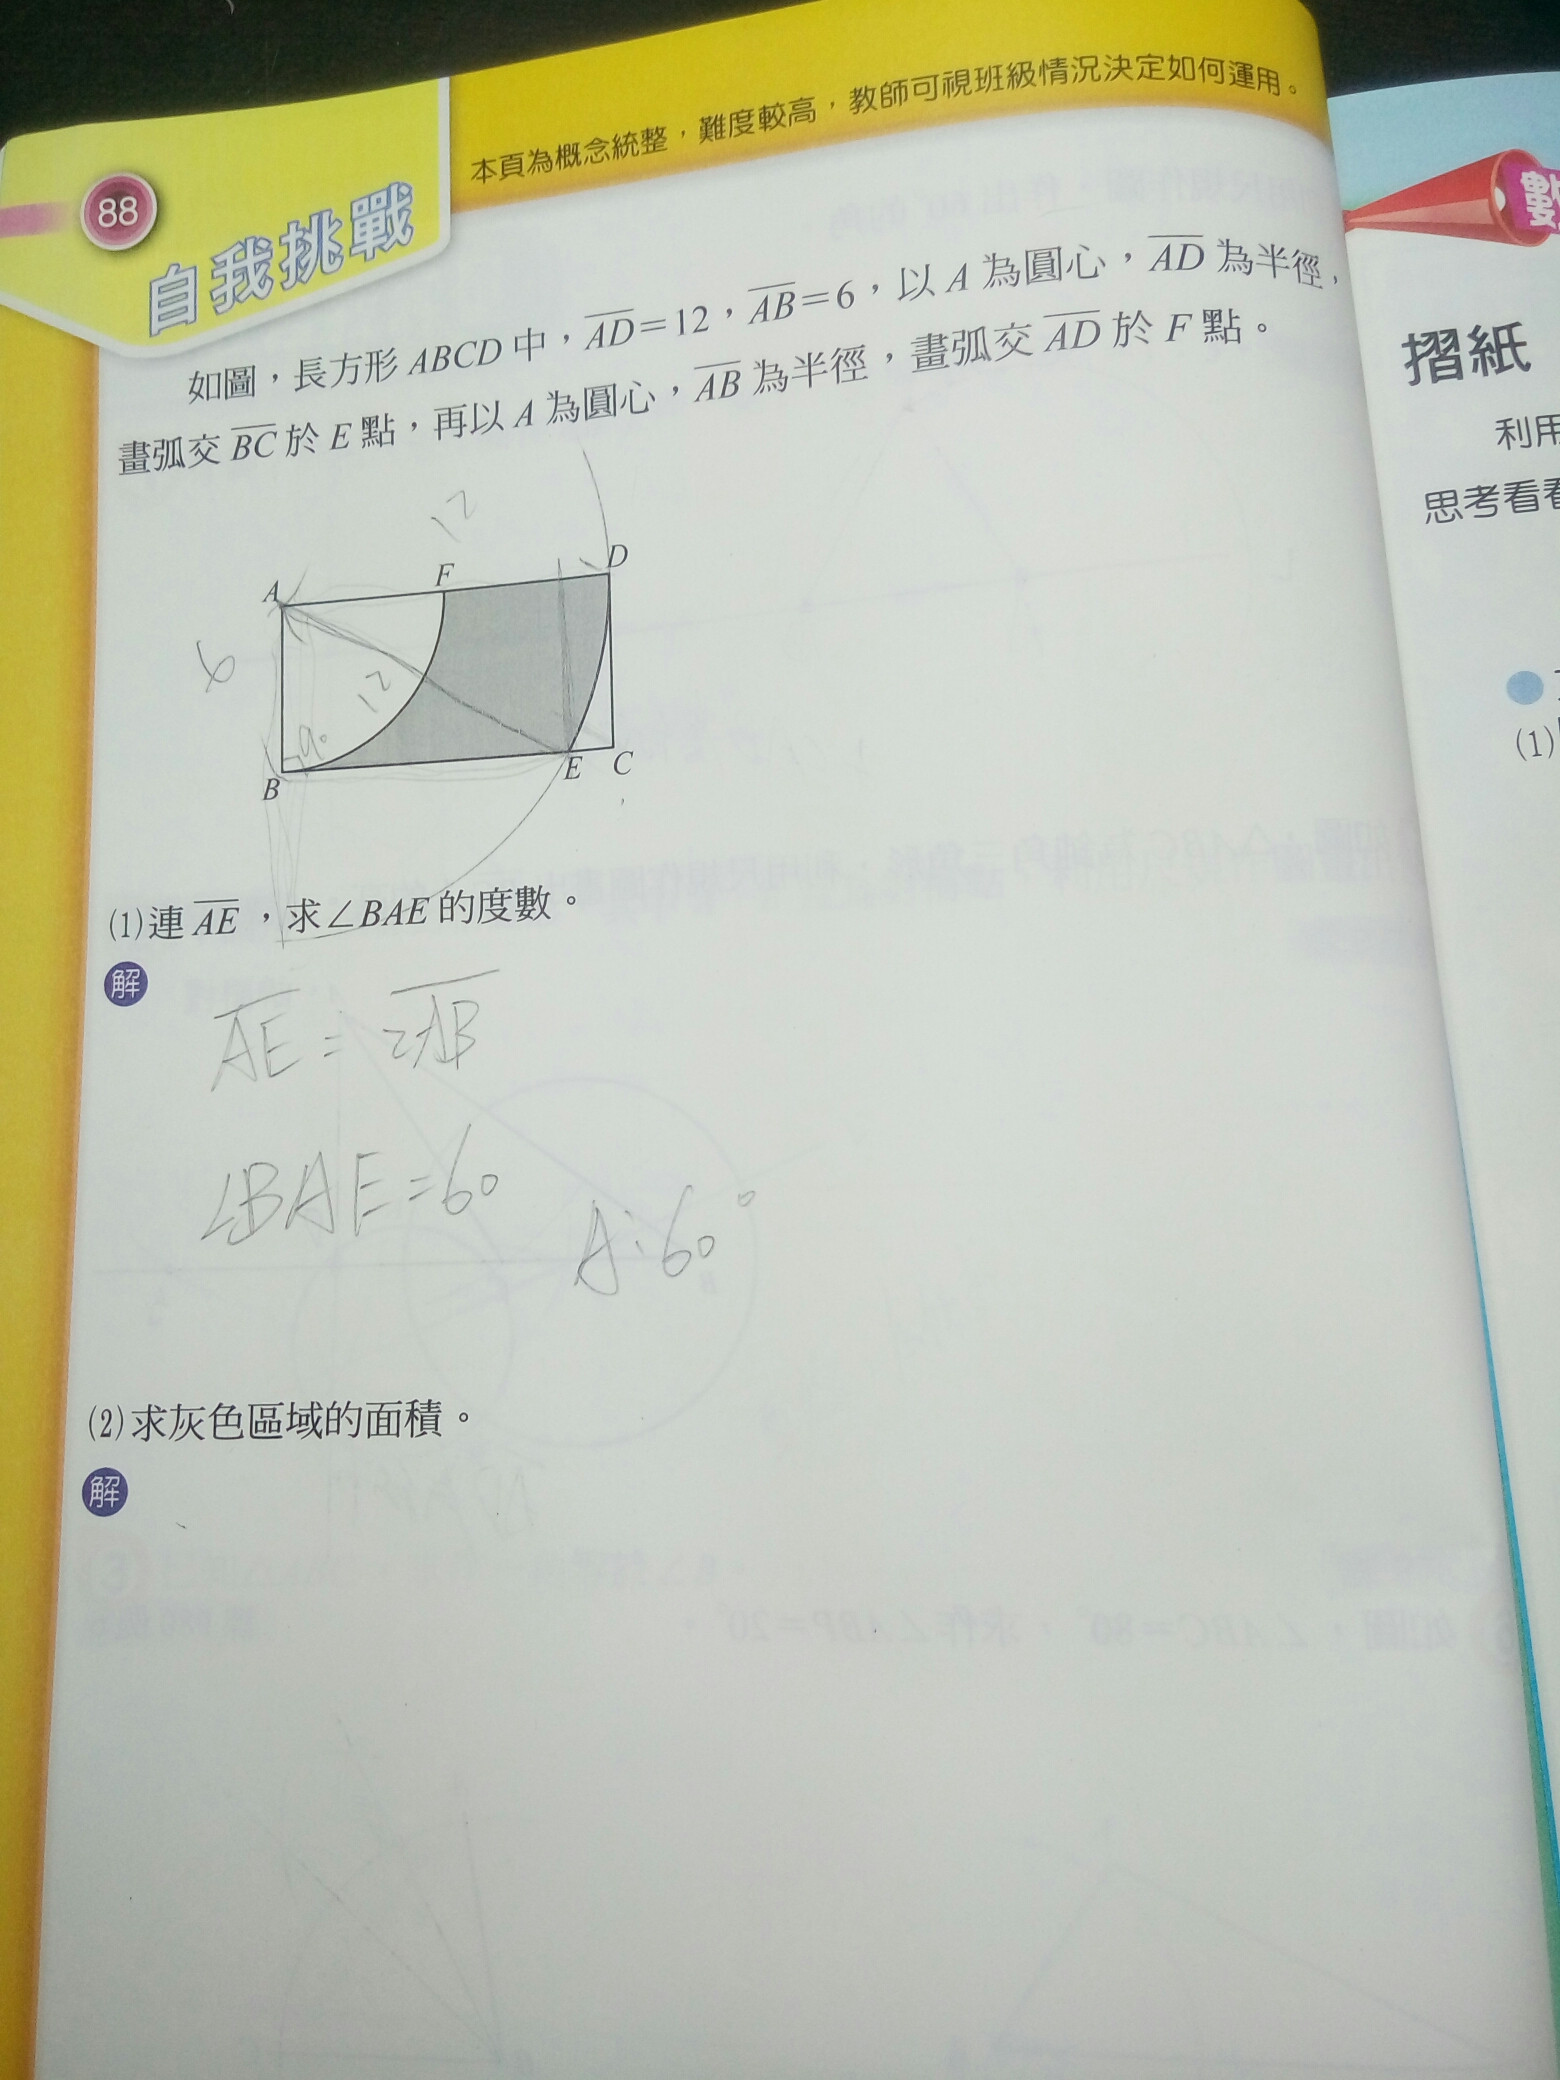 本頁為概念統整，難度較高，教師可視班級情況決定如何運用。
88
自我挑戰
如圖，長方形 ABCD 中，AD=12，AB=6，以 A 為圓心，AD 為半徑，
畫弧交 BC 於 E 點，再以 A 為圓心，AB 為半徑，畫弧交 AD 於 F 點。
12
A
F
D
6
12
90
B
E
C
(1)連 AE ，求∠BAE 的度數。
解
AE = 2AB
∠BAE=60
A:60°
(2)求灰色區域的面積。
解
數
摺紙
利用
思考看看
(1)